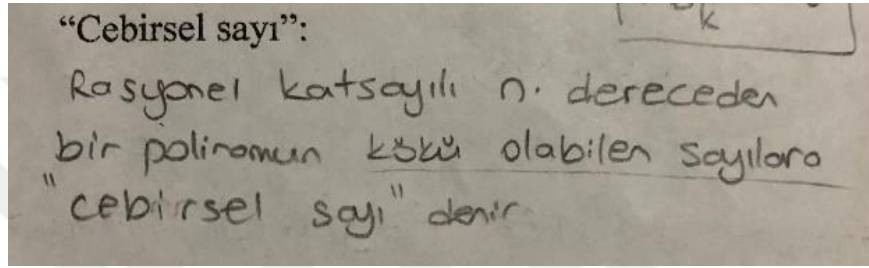 “Cebirsel sayı”:
k
Rasyonel katsayılı n. dereceden
bir polinomun kökü olabilen sayılara
"cebirsel sayı" denir